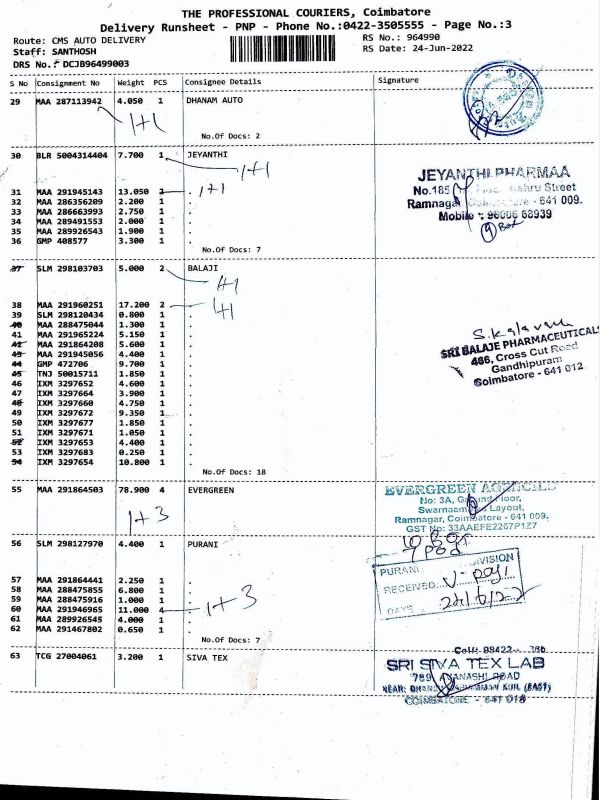 THE PROFESSIONAL COURIERS, Coimbatore
Delivery Runsheet - PNP - Phone No.:0422-3505555 - Page No.:3
Route: CMS AUTO DELIVERY RS No.: 964990
Staff: SANTHOSH RS Date: 24-Jun-2022
DRS No.: DCJB96499003
S No Consignment No Weight PCS Consignee Details Signature
29 MAA 287113942 4.050 1 DHANAM AUTO
1+1
No.Of Docs: 2
30 BLR 5004314404 7.700 1 JEYANTHI
1+1
JEYANTHI PHARMAA
No.185 Nehru Street
Ramnagar Coimbatore - 641 009.
Mobile : 96666 68939
9 Box
31 MAA 291945143 13.050 2 . 1+1
32 MAA 286356209 2.200 1 .
33 MAA 286663993 2.750 1 .
34 MAA 289491553 2.000 1 .
35 MAA 289926543 1.900 1 .
36 GMP 408577 3.300 1 .
No.Of Docs: 7
37 SLM 298103703 5.000 2 BALAJI
1+1
38 MAA 291960251 17.200 2 . 1+1
39 SLM 298120434 0.800 1 .
40 MAA 288475044 1.300 1 .
41 MAA 291965224 5.150 1 .
42 MAA 291864208 5.600 1 .
43 MAA 291945056 4.400 1 .
44 GMP 472706 9.700 1 .
45 TNJ 50015711 1.850 1 .
46 IXM 3297652 4.600 1 .
47 IXM 3297664 3.900 1 .
48 IXM 3297660 4.750 1 .
49 IXM 3297672 9.350 1 .
50 IXM 3297677 1.850 1 .
51 IXM 3297671 1.050 1 .
52 IXM 3297653 4.400 1 .
53 IXM 3297683 0.250 1 .
54 IXM 3297654 10.800 1 .
No.Of Docs: 18
S. Kalavani
SRI BALAJE PHARMACEUTICALS
466, Cross Cut Road
Gandhipuram
Coimbatore - 641 012
55 MAA 291864503 78.900 4 EVERGREEN
1+3
EVERGREEN AGENCIES
No: 3A, Ground Floor,
Layout,
Ramnagar, Coimbatore - 641 009.
GST No: 33AAEFE2267P1Z7
56 SLM 298127970 4.400 1 PURANI
10 Box
7 pod
PURANI DIVISION
RECEIVED
DATE 24/6/22
57 MAA 291864441 2.250 1 .
58 MAA 288475855 6.800 1 .
59 MAA 288475916 1.000 1 .
60 MAA 291946965 11.000 4 . 1+3
61 MAA 289926545 4.000 1 .
62 MAA 291467802 0.650 1 .
No.Of Docs: 7
63 TCG 27004061 3.200 1 SIVA TEX
Cell: 98422
SRI SIVA TEX LAB
789, AVANASHI ROAD
NEAR: KOIL (EAST)
COIMBATORE - 641 018